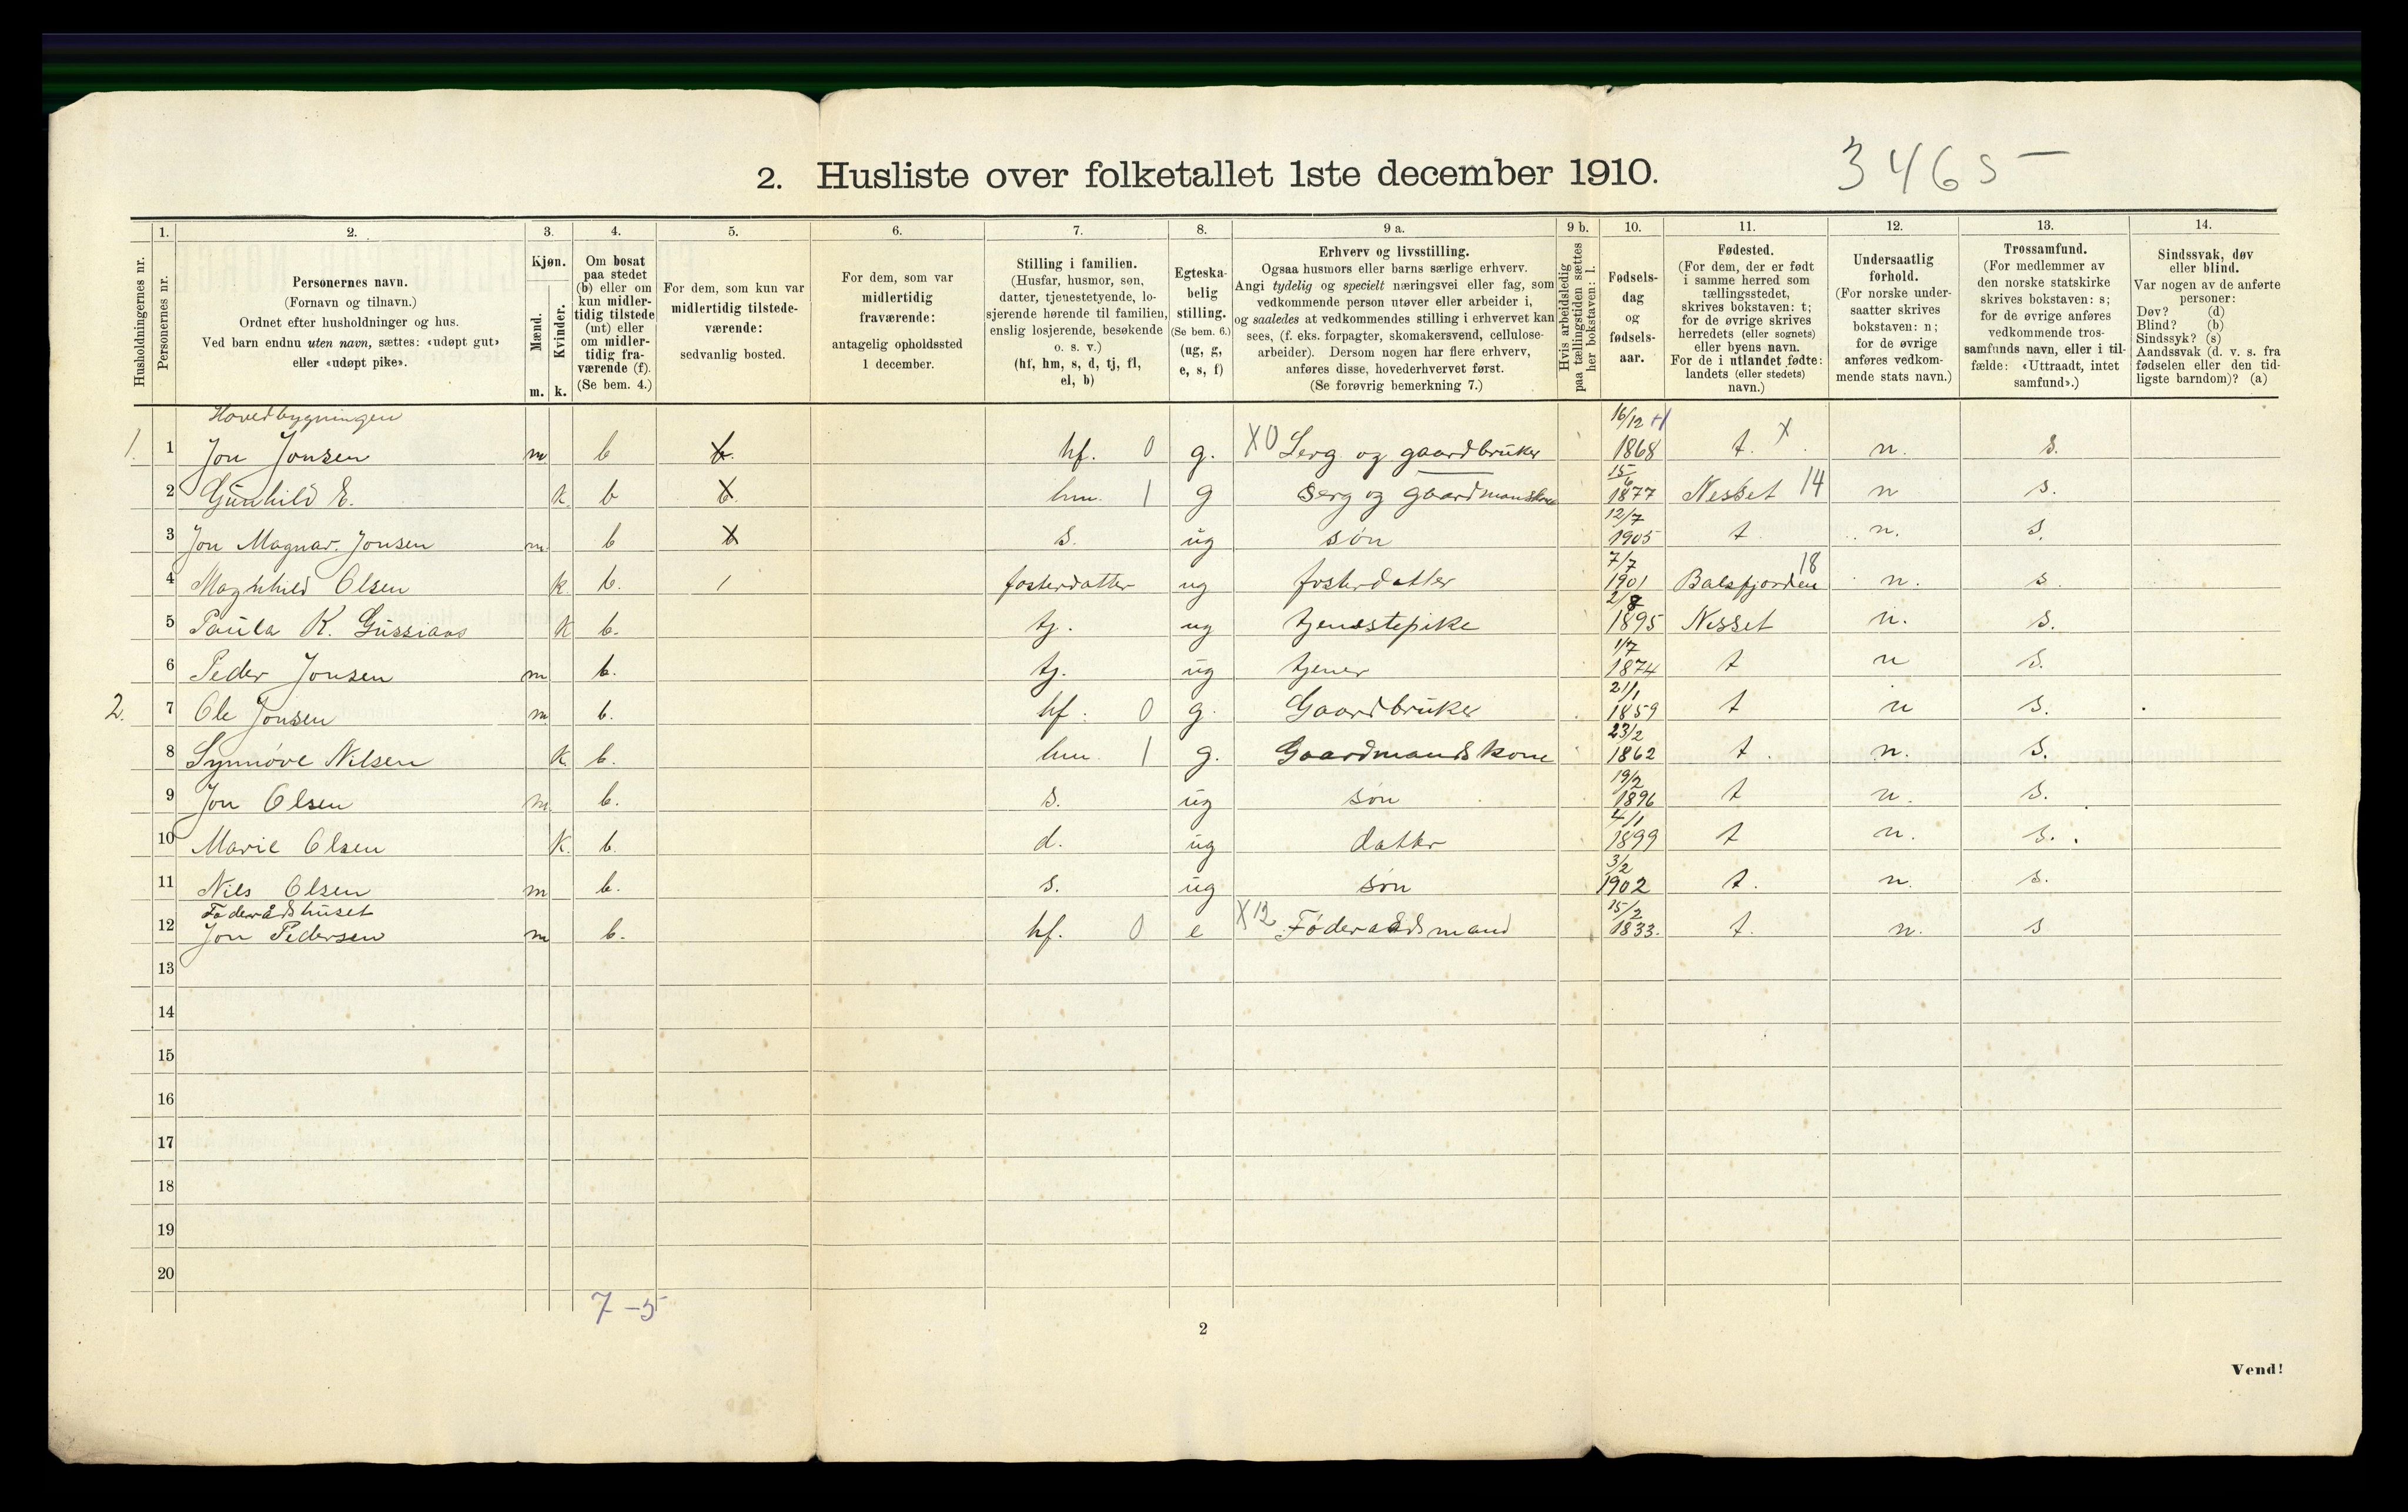 2. Husliste over folketallet 1ste december 1910. 3465
Husholdningernes nr.
1. Personernes nr.
2. Personernes navn.
(Fornavn og tilnavn.)
Ordnet efter husholdninger og hus.
Ved barn endnu uten navn, sættes: «udøpt gut»
eller «udøpt pike».
3. Kjøn.
Mænd. m.
Kvinder. k.
4. Om bosat
paa stedet
(b) eller om
kun midler-
tidig tilstede
(mt) eller
om midler-
tidig fra-
værende (f).
(Se bem. 4.)
5. For dem, som kun var
midlertidig tilstede-
værende:
sedvanlig bosted.
6. For dem, som var
midlertidig
fraværende:
antagelig opholdssted
1 december.
7. Stilling i familien.
(Husfar, husmor, søn,
datter, tjenestetyende, lo-
sjerende hørende til familien,
enslig losjerende, besøkende
o. s. v.)
(hf, hm, s, d, tj, fl,
el, b)
8. Egteska-
belig
stilling.
(Se bem. 6.)
(ug, g,
e, s, f)
9 a. Erhverv og livsstilling.
Ogsaa husmors eller barns særlige erhverv.
Angi tydelig og specielt næringsvei eller fag, som
vedkommende person utøver eller arbeider i,
og saaledes at vedkommendes stilling i erhvervet kan
sees, (f. eks. forpagter, skomakersvend, cellulose-
arbeider). Dersom nogen har flere erhverv,
anføres disse, hovederhvervet først.
(Se forøvrig bemerkning 7.)
9 b. Hvis arbeidsledig
paa tællingstiden sættes
her bokstaven: l.
10. Fødsels-
dag
og
fødsels-
aar.
11. Fødested.
(For dem, der er født
i samme herred som
tællingsstedet,
skrives bokstaven: t;
for de øvrige skrives
herredets (eller sognets)
eller byens navn.
For de i utlandet fødte:
landets (eller stedets)
navn.)
12. Undersaatlig
forhold.
(For norske under-
saatter skrives
bokstaven: n;
for de øvrige
anføres vedkom-
mende stats navn.)
13. Trossamfund.
(For medlemmer av
den norske statskirke
skrives bokstaven: s;
for de øvrige anføres
vedkommende tros-
samfunds navn, eller i til-
fælde: «Uttraadt, intet
samfund».)
14. Sindssvak, døv
eller blind.
Var nogen av de anførte
personer:
Døv? (d)
Blind? (b)
Sindssyk? (s)
Aandssvak (d. v. s. fra
fødselen eller den tid-
ligste barndom)? (a)
Hovedbygningen
1. 1 Jon Jonsen m b b. hf. 0 g. X0 Serg og gaardbruker 16/12 1868 t. X n. s.
2 Gunhild E. k. b b. hm. 1 g Serg og gaardmanskone 15/6 1877 Nesset 14 n s.
3 Jon Magnar. Jonsen m. b b s. ug søn 12/7 1905 t n. s.
4 Magnhild Olsen k. b. fosterdatter ug fosterdatter 7/7 1901 Balsfjorden 18 n. s.
5 Paula K. k b. tj. ug tjenestepike 2/8 1895 Nesset n. s.
6 Peder Jonsen m b. tj. ug tjener 1/7 1874 t n s.
2. 7 Ole Jonsen m b. hf. 0 g. Gaardbruker 21/1 1859 t n s.
8 Synnøve Nilsen k. b. hm 1 g. Gaardmandskone 23/2 1862 t. n. s.
9 Jon Olsen m. b. s. ug søn 19/2 1896 t n. s.
10 Marie Olsen k. b. d. ug datter 4/1 1899 t n. s.
11 Nils Olsen m b. s. ug søn 3/2 1902 t. n. s.
Føderådshuset
12 Jon Pedersen m b. hf. 0 e X12 Føderaadsmand 15/2 1833. t. n. s
13
14
15
16
17
18
19
20
7 – 5
2
Vend!